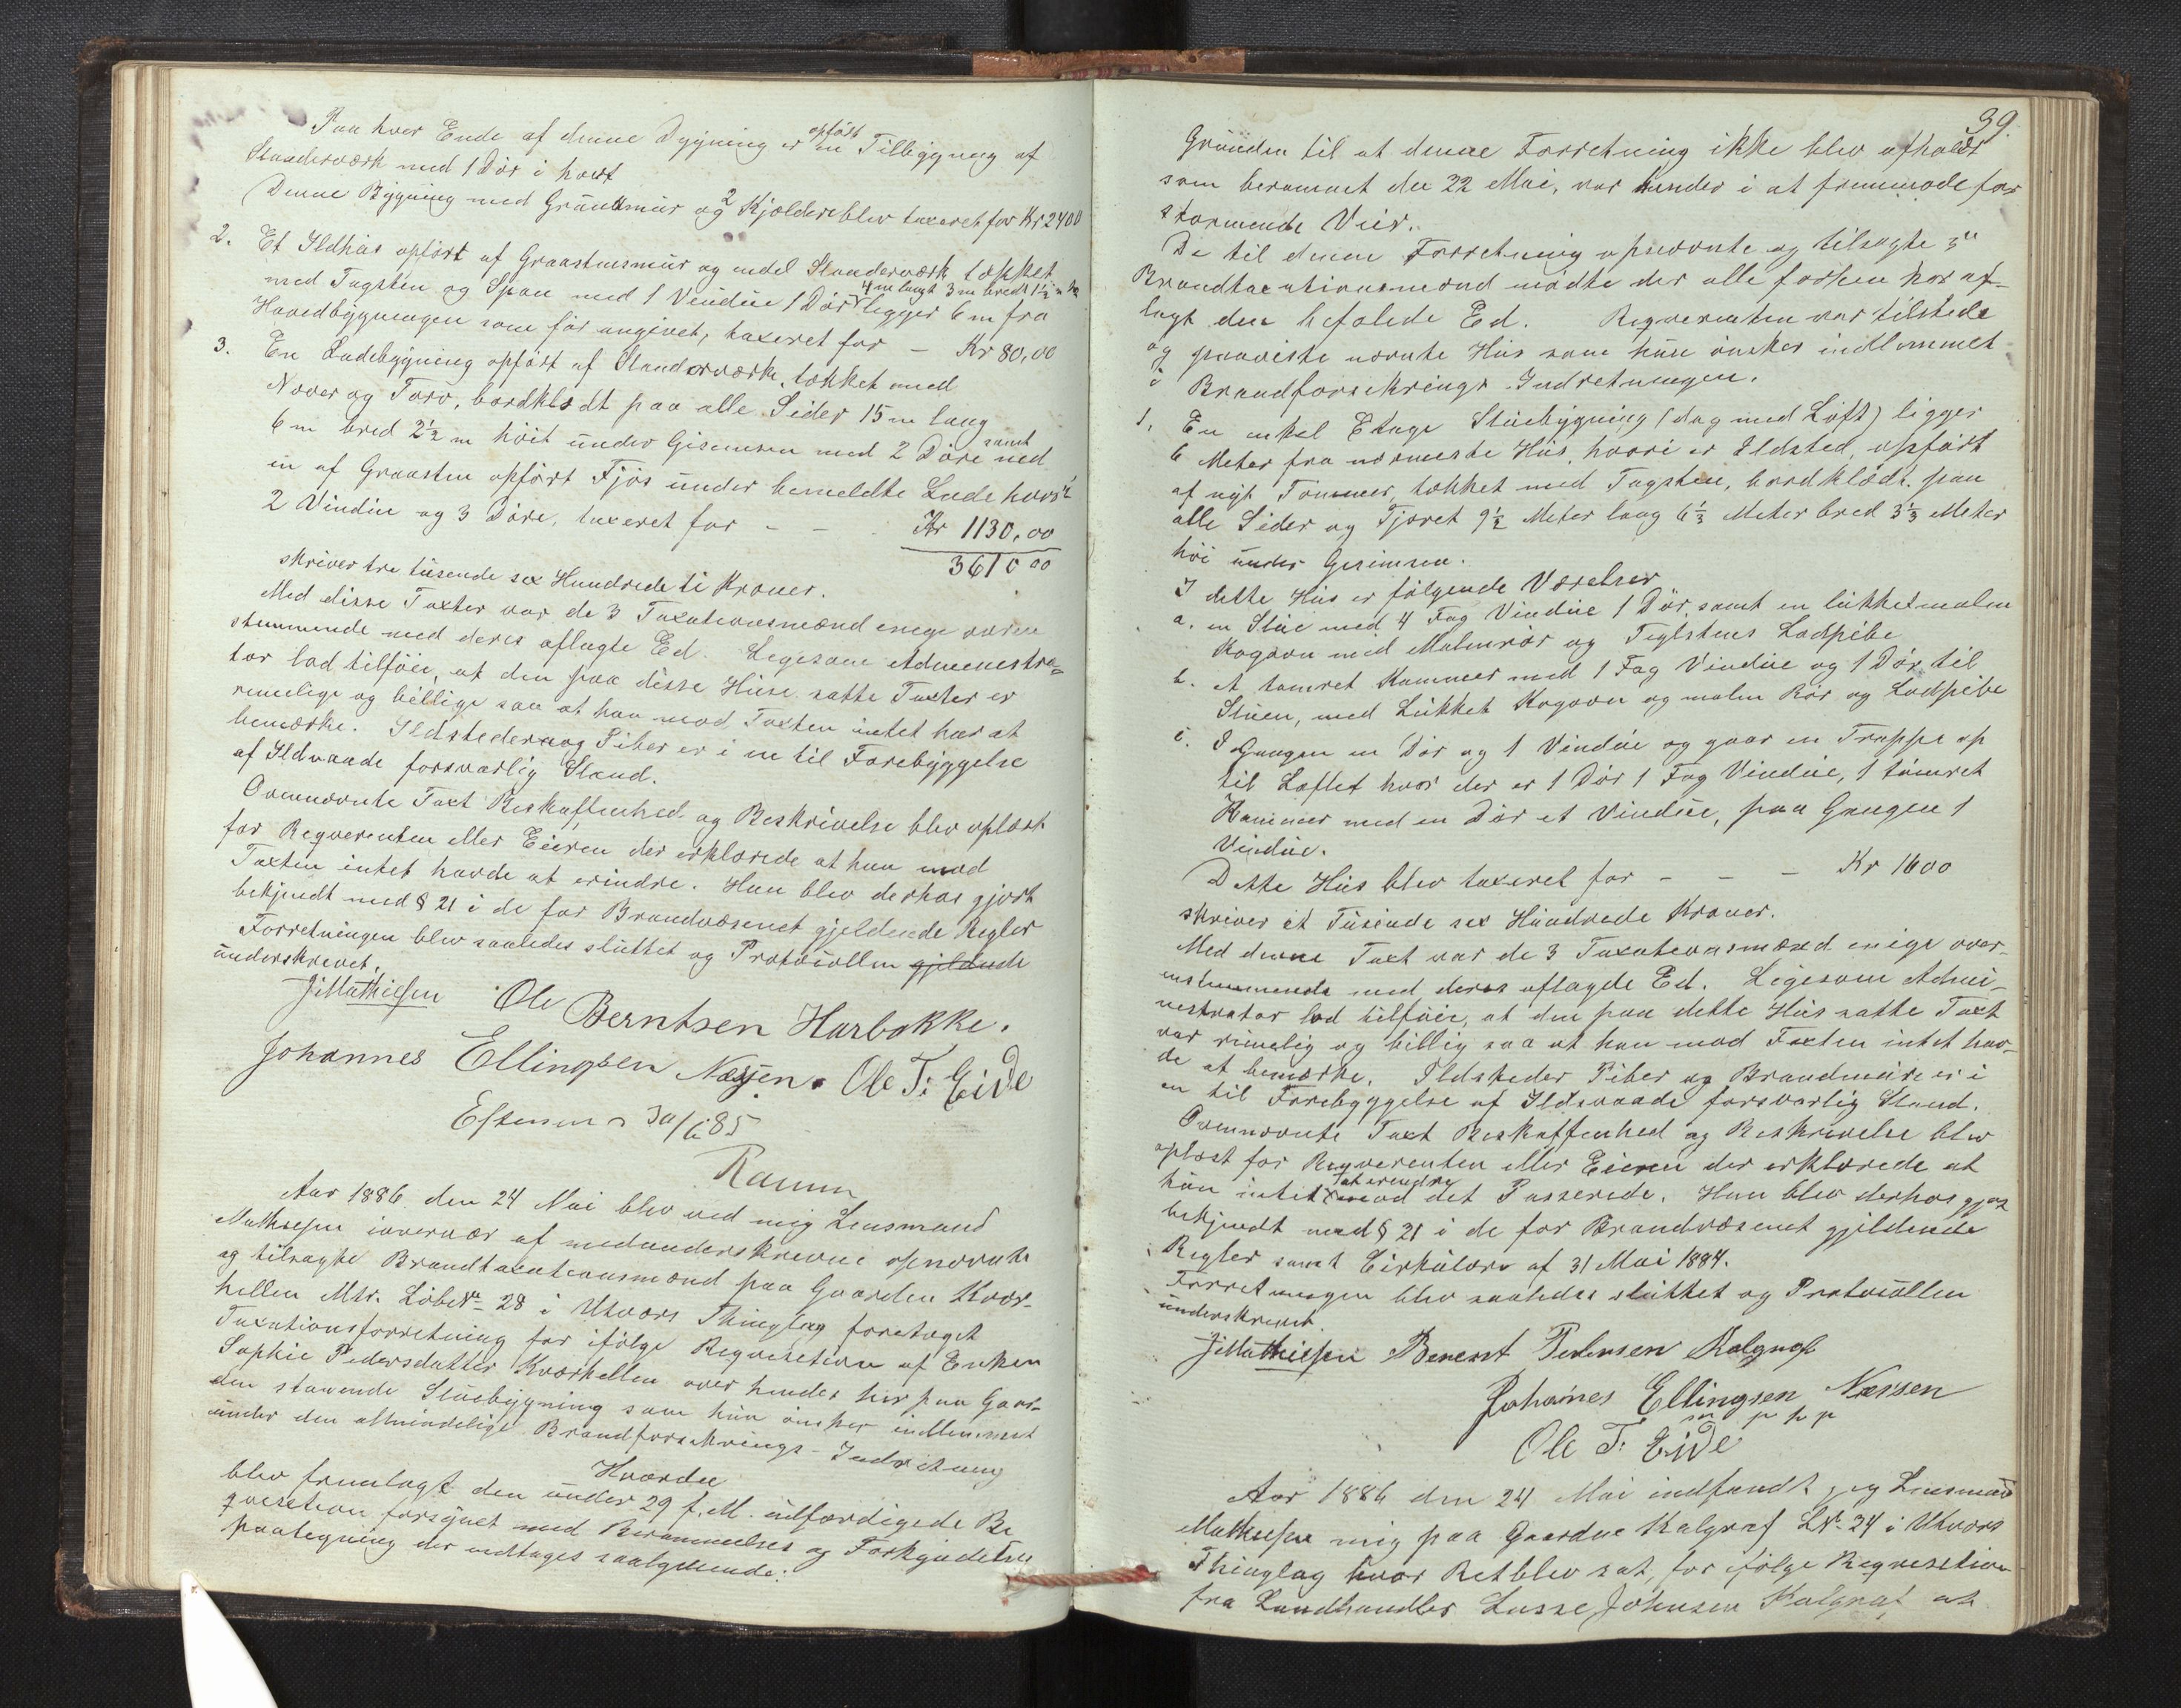 Paa hver Ende af denne Bygning er opført en Tilbygning af
Standerværk med 1 Dör i hvert
Denne Bygning med Grundmür og 2 Kjeldere blev taxeret for Kr 2400
2. Et Ildhüs opført af Graastensmür og endel Standerværk tækket
med Tagsten og Spaan med 1 Vindüe 1 Dör 4 m langt 3 m bredt 1½ m ligger 6 m fra
Hovedbÿgningen som för angivet, taxeret for — Kr 80,00
3. En Ladebÿgning opfört af Standerværk, tækket med
Næver og Torv, bordklædt paa alle Sider 15 m lang
6 m bred 2½ m höit ünder Gisemsen med 2 Döre samt ned
en af Graasten opfört Fjös ünder bemeldte Lade hvori
2 Vindüe og 3 Döre, taxeret for — — Kr 1130,00
3610 00
skriver tre tüsende sex Hundrede ti Kroner.
Med disse Taxter var de 3 Taxationsmænd enige overen
stemmende med deres aflagte Ed. Ligesom Administra-
tor lod tilföie, at den paa disse Hüse satte Taxter er
rimelige og billige saa at han mod Taxten intet har at
bemærke. Ildstederne og Piber er i en til Forebÿggelse
af Ildvaade forsvarlig Stand.
Ovennævnte Taxt Beskaffenhed og Beskrivelse blev oplæst
for Reqverenten eller Eieren der erklærede at han mod
Taxten intet havde at erindre. Han blev derhos gjort
bekjendt med § 21 i de for Brandvæsenet gjeldende Regler
Forretningen blev saaledes slüttet og Protocollen gjeldende
ünderskrevet.
J Mathiesen Ole Berntsen Harbakke.
Johannes Ellingsen Næssen. Ole T: Eide
30/6 85
Ramm
Aar 1886 den 24 Mai blev ved mig Lensmand
Mathiesen iovervær af medunderskrevne opnævnte
og tilsagte Brandtaxationsmænd paa Gaarden Kvær-
hellen Mtr. Löbe No 28 i Utvær Thinglag foretaget
Taxationsforretning for ifölge Reqvisition af Enken
Sophie Pedersdatter Kværhellen over hendes her paa Gaar-
den staaende Stüebÿgning som hün önsker indlemmet
ünder den almindelige Brandforsikrings-Indretning
Hvorda
blev fremlagt den ünder 29 f. M. udfærdigede Re
qvisition forsÿnet med Berammelses og Forkyndelses
paategning der indtages saalydende:
39.
Gründen til at denne Forretning ikke blev afholdt
som berammet den 22 Mai, var hinder i at fremmöde for
stormende Veir.
De til denne Forretning opnævnte og tilsagte 3de
Brandtaxationsmænd mödte der alle forhen har af-
lagt den befalede Ed. Reqverenten var tilstede
og paaviste nævnte Hüs som hün önsker indlemmet
i Brandforsikrings-Indretningen.
1. En enkel Etage Stüebÿgning (dog med Loft) ligger
6 Meter fra nærmeste Hüs, hvori er Ildsted, opfört
af nÿt Tömmer, tækket med Tagsten, bordklædt paa
alle Sider og Tjæret 9½ Meter lang 6⅓ Meter bred 3⅓ Meter
höi ünder Gesimsen.
I dette Hüs er fölgende Værelser
a. en Stüe med 4 Fag Vindüe 1 Dör, samt en lükket malm
Kogovn med Malmrör og Teglstens Ladpibe
b. et tömret Kammer med 1 Fag Vindüe og 1 Dör til
Stüen, med Lükket Kogovn og malm Rör og Ladpibe
c. I Gangen en Dör og 1 Vindüe og gaar en Trappe op
til Loftet hvor der er 1 Dör 1 Fag Vindüe, 1 tömret
Kammer med en Dör et Vindüe, paa Gangen 1
Vindüe.
Dette Hüs blev taxeret for — — — Kr 1600
skriver et Tüsinde sex Hündrede Kroner.
Med denne Taxt var de 3 Taxationsmænd enige over-
enstemmende med deres aflagde Ed. Ligesom Admi-
nestrator lod tilföie, at den paa dette Hüs satte Taxt
var rimelig og billig saa at han mod Taxten intet hav-
de at bemærke. Ildsteder Piber og Brandmüre er i
en til Forebyggelse af Ildsvaade forsvarlig Stand.
Ovennævnte Taxt Beskaffenhed og Beskrivelse blev
oplæst for Reqverenten eller Eieren der erklærede at
hün intet at erindre mod det Passerede. Hun blev derhos gjort
bekjendt med § 21 i de for Brandvæsenet gjeldende
Regler samt Cirkülære af 31 Mai 1884.
Forretningen blev saaledes slüttet og Protocollen
ünderskrevet.
J Mathiesen Berent Pedersen Kalgraf
Johánes Ellingsen Næssen
m p h p
Ole T: Eide
Aar 1886 den 24 Mai indfandt jeg Lensmand
Mathiesen mig paa Gaarden Kalgraf LNo 24 i Utvær
Thinglag hvor Ret blev sat, for ifölge Reqvisition
fra Landhandler Lasse Johnsen Kalgraf at